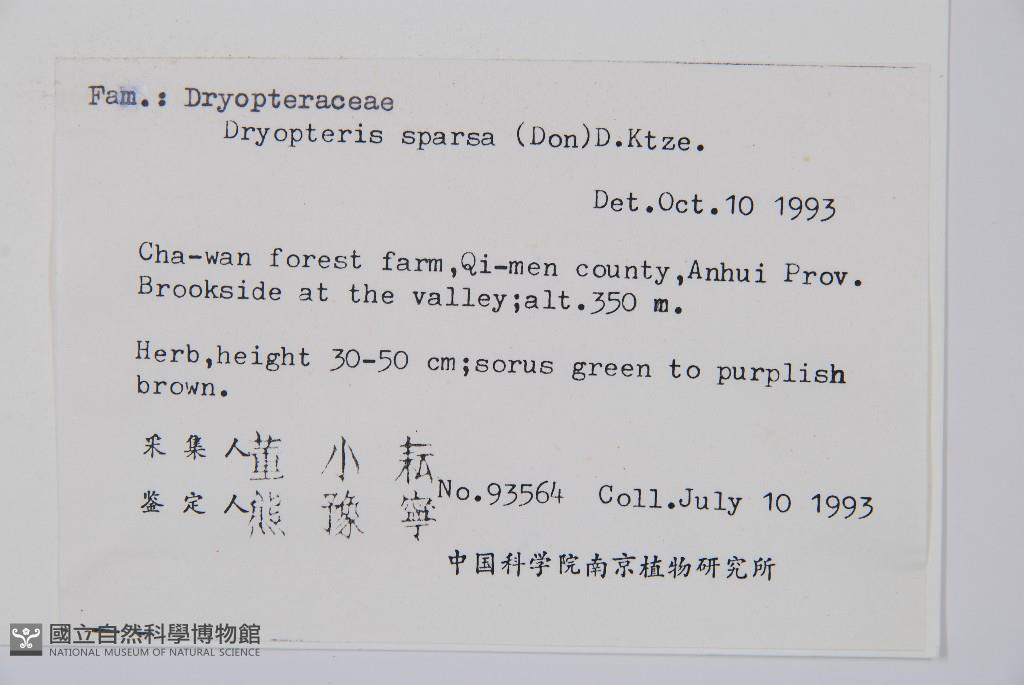 Fam.: Dryopteraceae
Dryopteris sparsa (Don)D.Ktze.
Det.Oct.10 1993
Cha-wan forest farm,Qi-men county,Anhui Prov.
Brookside at the valley;alt.350 m.
Herb,height 30-50 cm;sorus green to purplish
brown.
采集人 董小耘
鉴定人 熊豫寧 No.93564 Coll.July 10 1993
中国科学院南京植物研究所
國立自然科學博物館
NATIONAL MUSEUM OF NATURAL SCIENCE